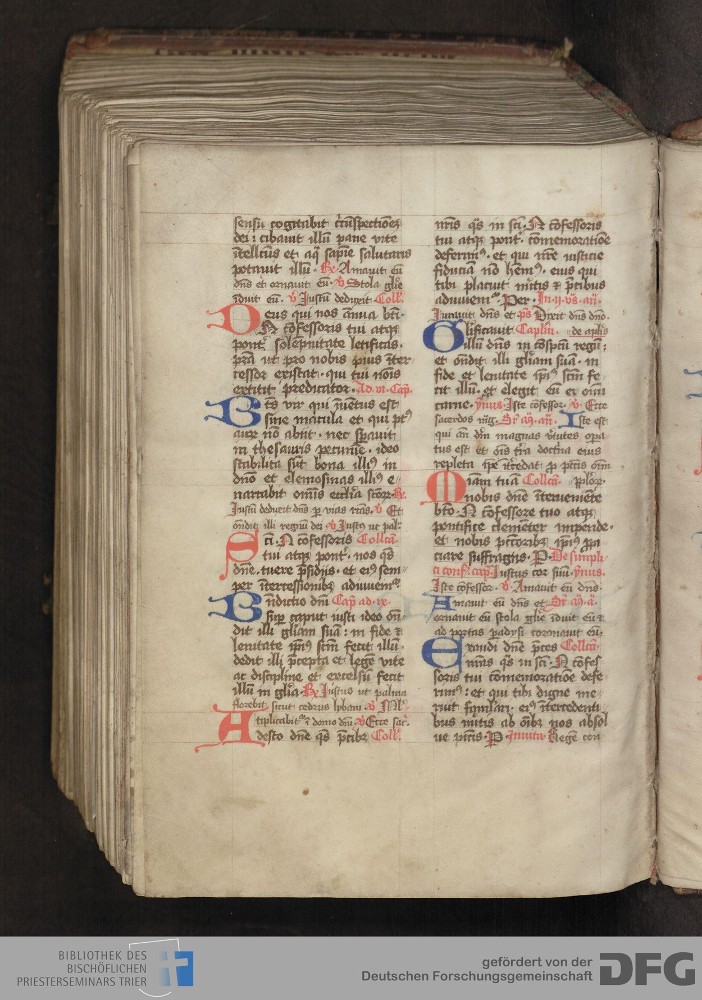 sensu cogitabit c̄iu̅spectionez
dei : cibauit illu̅ pane vite
i̅tellc̅us et aq̅ sapie̅ salutaris
potauit illu̅ · R̷ Amauit eu̅
dn̅s et ornauit eu̅ · v̷ Stola gl̅ie
i̅duit eu̅ · v̷ Justu̅ deduxit · Coll̅
Deus qui nos a̅nua bt̅i ·
N co̅fessoris tui atq̷
pont̅ sole̅pnitate letificas ·
p̅ra̅ ut pro nobis pius i̅ter
cessor existat · qui tui no̅is
extitit predicator · Ad · vi · Cap̅
Bt̅s vir qui i̅ue̅tus est
sine macula et qui pt̅
auru̅ no̅ abiit · nec sp̅auit
in thesauris pecunie̅ · ideo
stabilita su̅t bona illi⁹ in
dn̅o et elemosinas illi⁹ e
narrabit om̅is eccl̅ia sc̅or̷ · R̷
Justu̅ deduxit dn̅s p̱ vias rc̅as · v̷ Et
ondit illi regnu̅ dei v̷ Justus ut pal̅
Sc̅i · N co̅fessoris Collc̅a
tui atq̷ pont̅ · nos q̅s
dn̅e · tuere p̅sidijs · et ei⁹ sem
per i̅tercessionib̷ adiuuem̅
Bn̅dictio dn̅i Cap̅ ad · ix ·
sup̱ caput iusti ideo on̅
dit illi gl̅iam sua̅ : in fide ⁊
lenitate ip̅i⁹ sc̅m fecit illu̅ ·
dedit illi p̅cepta et lege̅ vite
ac discipline et excelsu̅ fecit
illu̅ in gl̅ia · R̷ Justus ut palma
florebit sicut cedrus lybani · v̷ Ml̅
tiplicabit i̅ domo dn̅i v̷ Ecce sac̅ ·
Adesto dn̅e q̅s p̅cib̷ Coll̅
nr̅is q̅s in sc̅i · N co̅fessoris
tui atq̷ pont̅ · co̅memoratio̅e
deferim⁹ · et qui nr̅e iusticie
fiducia̅ no̅ hem̅⁹ · eius qui
tibi placuit m̅itis ⁊ p̅cibus
adiuuem̅ · Per · In · ij · vs · an̅ ·
Juravit dn̅s et p̅s Dixit dn̅s dn̅o ·
Glificauit Caplm̅ · de ap̅lis
illu̅ dn̅s in co̅spc̅u regu̅ :
et on̅dit illi gl̅iam sua̅ · in
fide et lenitate ip̅i⁹ sc̅m fe
cit illu̅ · et elegit eu̅ ex om̅i
carne · ymn⁹ Iste co̅fessor · v̷ · Ecce
sacerdos mg̅ · Sr̅ an̅ · Iste est
qui an̅ dm̅ magnas v̅tutes opa
tus est et om̅s t̅ra doctria eius
repleta ip̅e i̅t̅cedat p̱ pc̅tis om̅
Qiam tua̅ Collc̅a · ploꝝ ·
nobis dn̅e i̅terueniente
bt̅o · N co̅fessore tuo atq̷
pontifice cleme̅ter impende ·
et nobis pc̅toribz ip̅i⁹ p̱pi
ciare suffragijs · P · De simpli
ci conf̅ · cap̅ Justus cor suu̅ · ymnus ·
Iste co̅fessor · v̷ Amauit eu̅ dn̅s ·
Amauit eu̅ dn̅s et Sr̅ m̅ · a̅ ·
ornauit eu̅ stola gl̅ie i̅duit eu̅ ⁊
ad portas padysi coronauit eu̅ ·
Exaudi dn̅e p̅ces Collc̅a
nr̅as q̅s in sc̅i · N co̅fes
soris tui co̅memoratio̅e defe
rim⁹ : et qui tibi digne me
ruit famulari · ei⁹ i̅tercedenti
bus m̅itis ab o̅ib̷ nos absol
ue pc̅tis · P · Inuita̅ Rege̅ con
BIBLIOTHEK DES
BISCHÖFLICHEN
PRIESTERSEMINARS TRIER
gefördert von der
Deutschen Forschungsgemeinschaft DFG